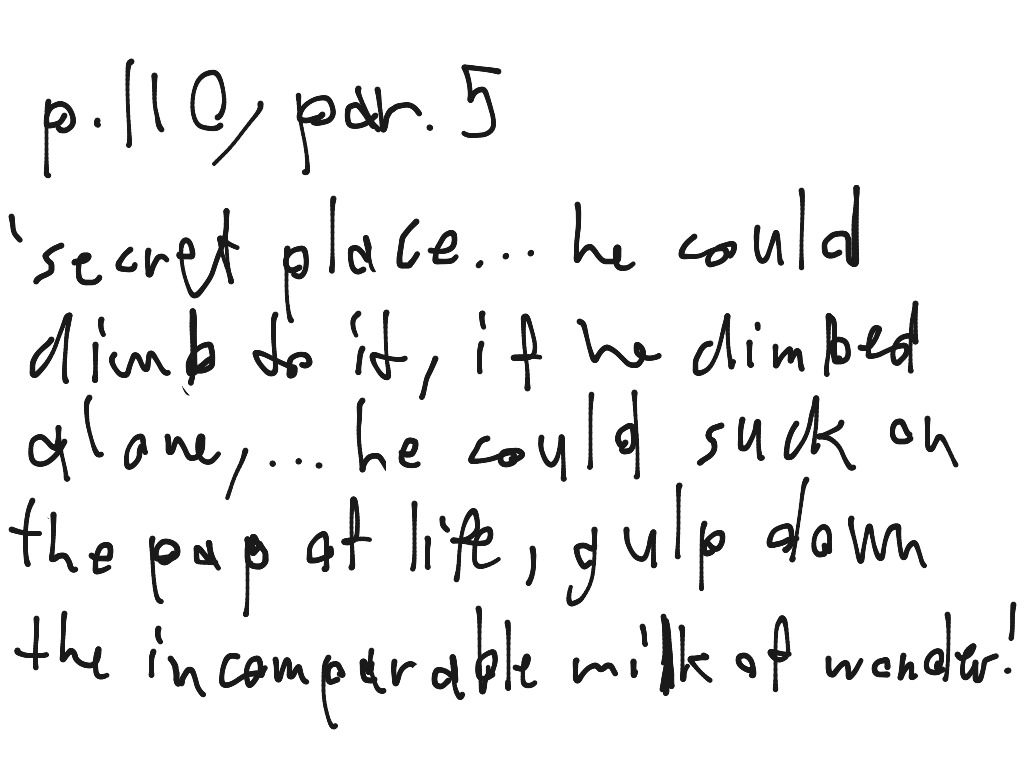 p.110, par. 5
'secret place... he could
climb to it, if he climbed
alone,... he could suck on
the pap of life, gulp down
the incomparable milk of wonder.'